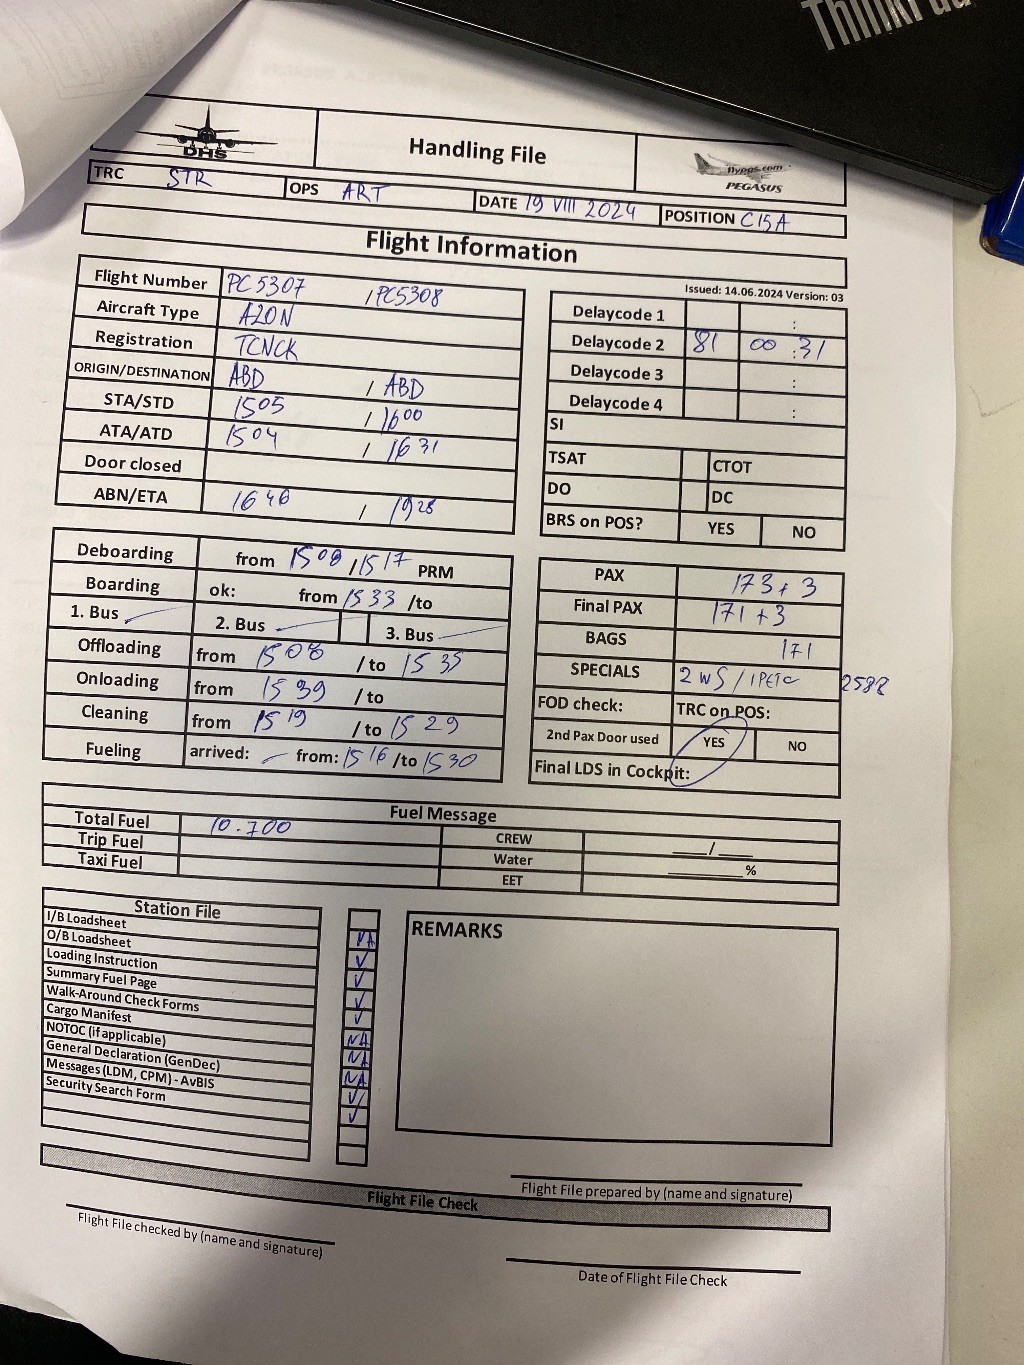 ThinkPad
DHS
Handling File
flypgs.com
PEGASUS
TRC STR OPS ART DATE 19 VIII 2024 POSITION C15A
Flight Information
Issued: 14.06.2024 Version: 03
Flight Number PC 5307 / PC5308
Aircraft Type A20N
Registration TCNCK
ORIGIN/DESTINATION ABD / ABD
STA/STD 1505 / 1600
ATA/ATD 1504 / 1631
Door closed
ABN/ETA 1646 / 1928
Delaycode 1 :
Delaycode 2 81 00 : 31
Delaycode 3 :
Delaycode 4 :
SI
TSAT CTOT
DO DC
BRS on POS? YES NO
Deboarding from 1508 / 1517 PRM
Boarding ok: from 1533 /to
1. Bus 2. Bus 3. Bus
Offloading from 1508 / to 1535
Onloading from 1539 / to
Cleaning from 1519 / to 1529
Fueling arrived: from: 1516 /to 1530
PAX 173 + 3
Final PAX 171 + 3
BAGS 171
SPECIALS 2 WS / 1PETC 2588
FOD check: TRC on POS:
2nd Pax Door used YES NO
Final LDS in Cockpit:
Fuel Message
Total Fuel 10.700 CREW ___/___
Trip Fuel Water ______%
Taxi Fuel EET
Station File
I/B Loadsheet
O/B Loadsheet NA
Loading Instruction ✓
Summary Fuel Page ✓
Walk-Around Check Forms ✓
Cargo Manifest ✓
NOTOC (if applicable) NA
General Declaration (GenDec) NA
Messages (LDM, CPM) - AvBIS NA
Security Search Form ✓
✓
REMARKS
Flight File prepared by (name and signature)
Flight File Check
Flight File checked by (name and signature)
Date of Flight File Check